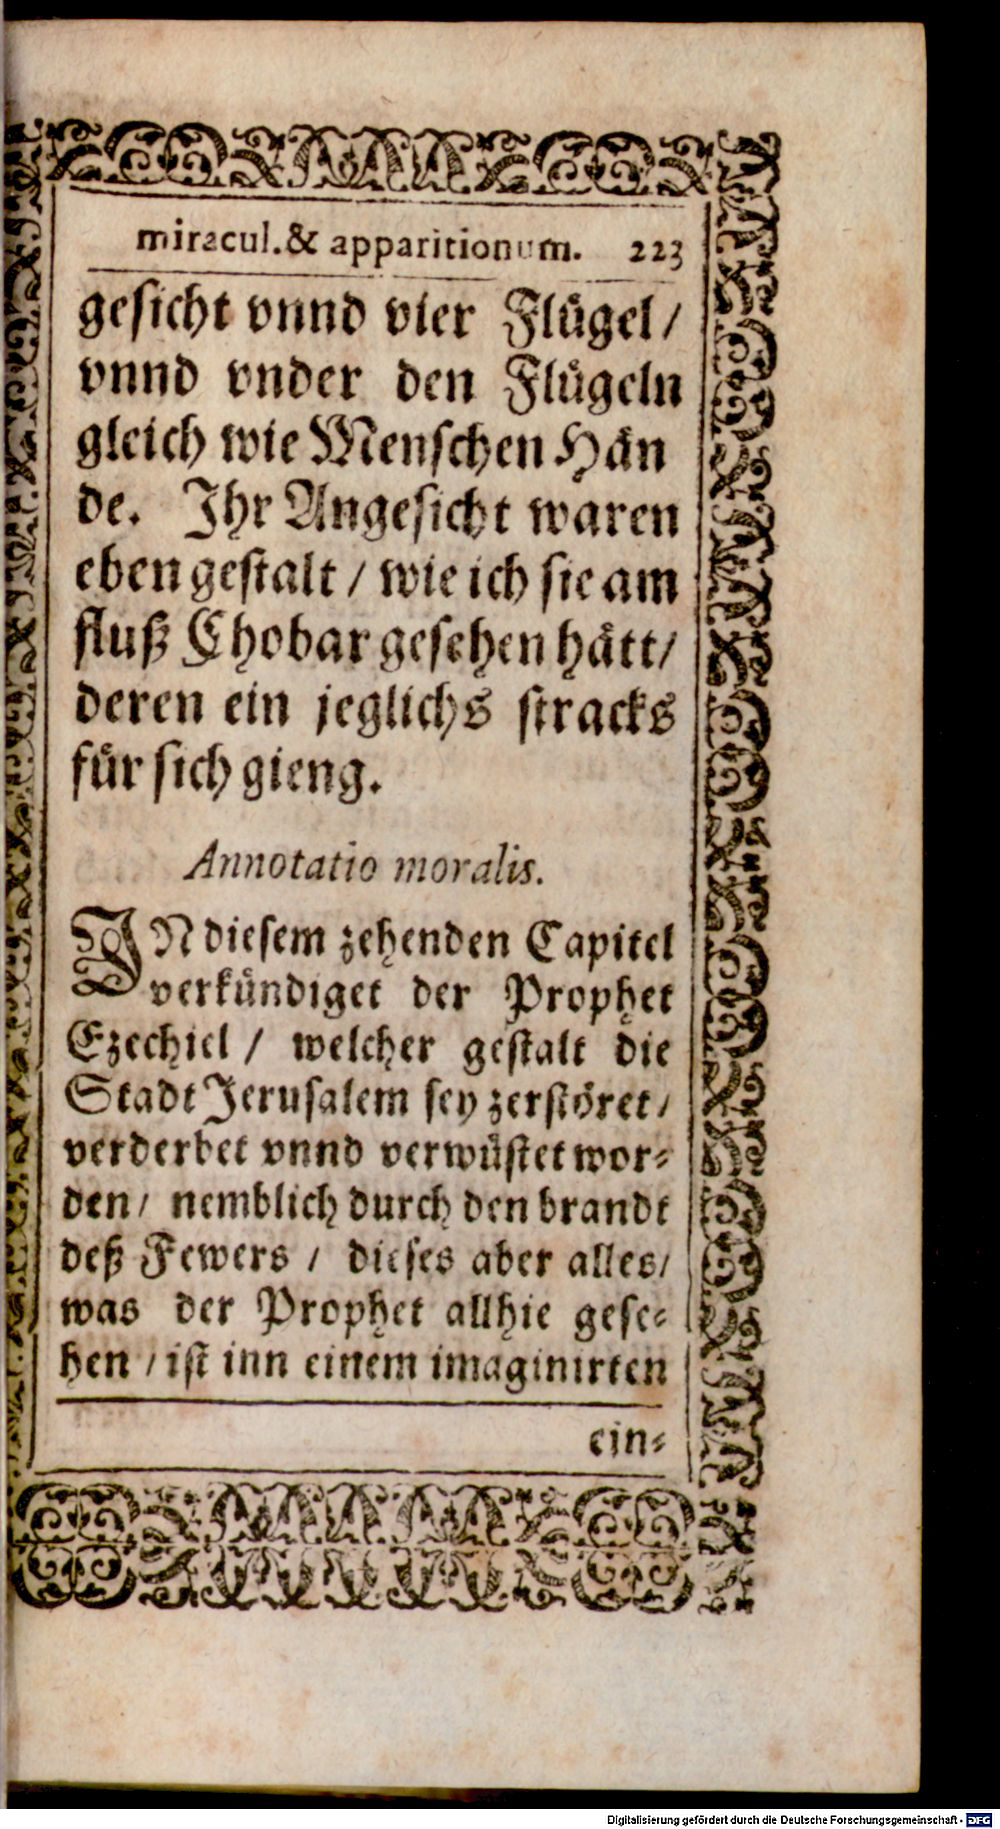 miracul.& apparitionum. 223
gesicht vnnd vier Flügel /
vnnd vnder den Flügeln
gleich wie Menschen Hän
de. Ihr Angesicht waren
eben gestalt / wie ich sie am
fluß Chobar gesehen hätt /
deren ein jeglichs stracks
für sich gieng.
Annotatio moralis.
IN diesem zehenden Capitel
verkündiget der Prophet
Ezechiel / welcher gestalt die
Stadt Jerusalem sey zerstöret /
verderbet vnnd verwüstet wor-
den / nemblich durch den brandt
deß Fewers / dieses aber alles /
was der Prophet allhie gese-
hen / ist inn einem imaginirten
ein-
Digitalisierung gefördert durch die Deutsche Forschungsgemeinschaft - DFG